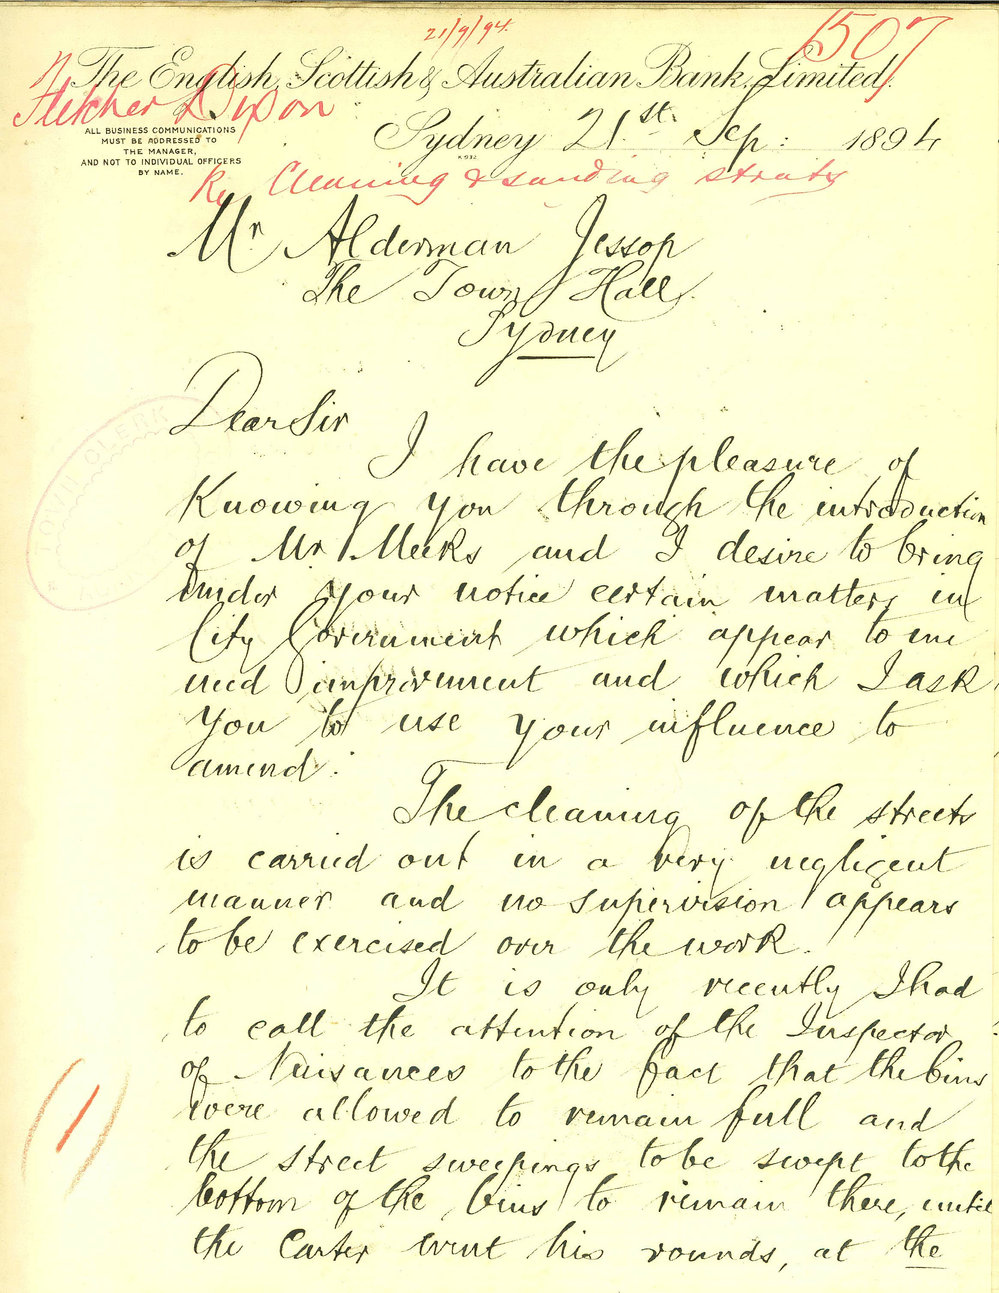 21/9/94
1507
The English, Scottish & Australian Bank, Limited.
Fletcher Dixon
ALL BUSINESS COMMUNICATIONS
MUST BE ADDRESSED TO
THE MANAGER,
AND NOT TO INDIVIDUAL OFFICERS
BY NAME.
Sydney 21st Sep: 1894
Re Cleaning & sanding streets
Mr Alderman Jessop
The Town Hall
Sydney
Dear Sir
TOWN CLERK
I have the pleasure of
Knowing you through the introduction
of Mr Meeks and I desire to bring
under your notice certain matters in
City Government which appear to me
need improvement and which I ask
you to use your influence to
amend.
The cleaning of the streets
is carried out in a very negligent
manner and no supervision appears
to be exercised over the work.
It is only recently I had
to call the attention of the Inspector
of Nuisances to the fact that the bins
were allowed to remain full and
(1)
the street sweepings to be swept to the
bottom of the bins to remain there, until
the Carter went his rounds, at the